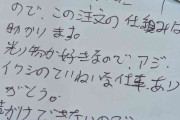 ので、この注文の仕組みは
助かります。
光り物が好きなので、アジ・
イワシのていねいな仕事、あり
がとう。